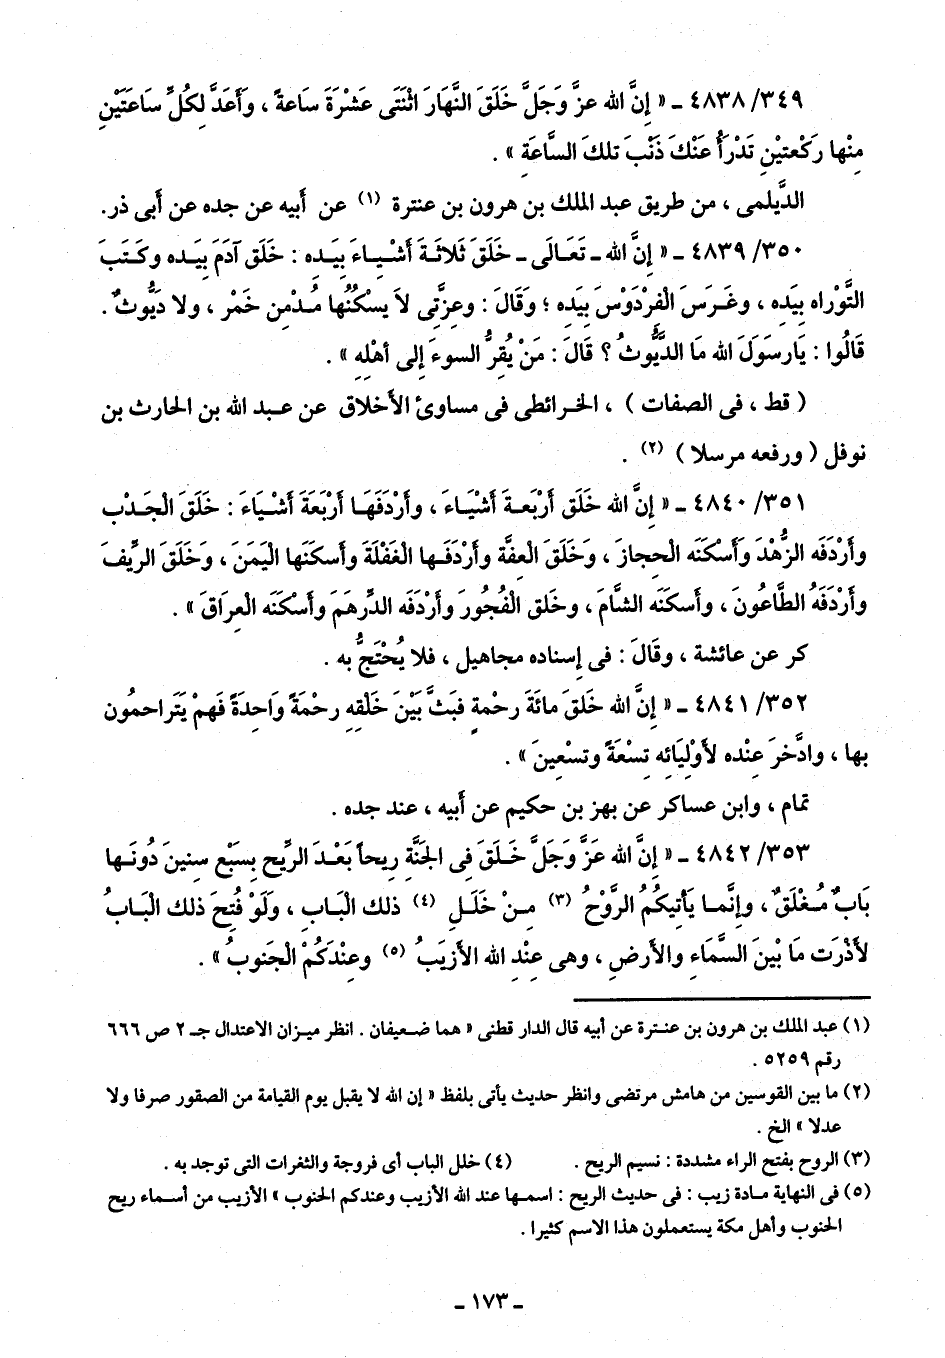 ٤٨٣٨/٣٤٩ ـ « إِنَّ الله عزَّ وَجَلَّ خَلَقَ النَّهَارَ اثْنَتَى عَشْرَةَ سَاعةً ، وَأَعَدَّ لِكُلِّ سَاعَتَيْنِ
مِنْها رَكْعتيْنِ تَدْرَأُ عَنْكَ ذَنْبَ تلكَ السَّاعَةِ » .
الدَّيلمى ، من طريق عبد الملك بن هرون بن عنترة (١) عن أَبيه عن جده عن أَبى ذر.
٤٨٣٩/٣٥٠ ـ « إِنَّ الله ـ تَعَالَى ـ خَلَقَ ثَلاثَةَ أَشْيـاءَ بِيَده : خَلَق آدَمَ بِيَده وكَتَبَ
التَّوْراه بِيَده ، وغَـرَسَ الْفِرْدَوْسَ بِيَده ؛ وَقَالَ : وعِزَّتِى لاَ يسْكُنُها مُدْمِن خَمْر ، ولا دَيُّوثٌ .
قَالُوا : يَارسَوَلَ الله مَا الدَّيُّوثُ ؟ قَالَ : مَنْ يُقِرُّ السوءَ إِلى أهْلِهِ » .
( قط ، فى الصفات ) ، الخـرائطى فى مساوئ الأَخلاق عن عبـد الله بن الحارث بن
نوفل ( ورفعه مرسلا ) (٢) .
٤٨٤٠/٣٥١ ـ « إِنَّ الله خَلَق أَرْبَعـةَ أَشْيَاءَ ، وأَرْدَفَهَـا أَرْبَعَةَ أَشْيَاءَ : خَلَقَ الْجَدْب
وأَرْدَفَه الزُّهْدَ وَأَسْكَنَه الْحِجازَ ، وَخَلَقَ الْعِفَّة وأَرْدَفَـها الْغَفْلَةَ وأَسكَنَها الْيَمَنَ ، وَخَلَقَ الرِّيفَ
وأَرْدَفَهُ الطَّاعُونَ ، وأَسكَنَه الشَّامَ ، وخَلق الْفُجُورَ وأَرْدَفَه الدِّرهَمَ وأَسْكَنَه الْعِراقَ » .
كر عن عائشة ، وقَالَ : فى إِسناده مجاهيل ، فلا يُحْتَجُّ به .
٤٨٤١/٣٥٢ ـ « إِنَّ الله خَلَقَ مائَةَ رحْمةٍ فبَثَّ بَيْنَ خَلْقِهِ رحْمَةً وَاحِدَةً فَهِمْ يَتَراحمُون
بها ، وادَّخرَ عِنْده لأَوْلِيَائِه تِسْعَةً وتسْعِينَ » .
تمام ، وابن عساكر عن بهز بن حكيم عن أَبيه ، عند جده .
٤٨٤٢/٣٥٣ ـ « إِنَّ الله عَزَّ وَجَلَّ خَلَقَ فِى الجَنَّةِ رِيحاً بَعْـدَ الرِّيح بِسَبْع سنِينَ دُونَـها
بَابٌ مُـغْلَقٌ ، وإِنَّمـا يَأْتِيكُمُ الرَّوْحُ (٣) مِـنْ خَلَـلِ (٤) ذلك الْبَـابِ ، ولَوْ فُتِحَ ذلك الْبَـابُ
لأَذْرَت مَا بْيَنَ السَّمَاءِ والأَرضِ ، وهى عِنْدِ الله الأَزيَبُ (٥) وعِنْدَكُمْ الْجَنوبُ » .
(١) عبد الملك بن هرون بن عنـترة عن أبيه قال الدار قطنى « هما ضـعيفان . انظر ميـزان الاعتدال جـ ٢ ص ٦٦٦
رقم ٥٢٥٩ .
(٢) ما بين القوسين من هامش مرتضى وانظر حديث يأتى بلفظ « إن الله لا يقبل يوم القيامة من الصقور صرفا ولا
عدلا » الخ .
(٣) الروح بفتح الراء مشددة : نسيم الريح . (٤) خلل الباب أى فروجة والثغرات التى توجد به .
(٥) فى النهاية مـادة زيب : فى حديث الريح : اسمـها عند الله الأزيب وعندكم الجنوب » الأزيب من أسـماء ريح
الجنوب وأهل مكة يستعملون هذا الاسم كثيرا .
ـ ١٧٣ ـ